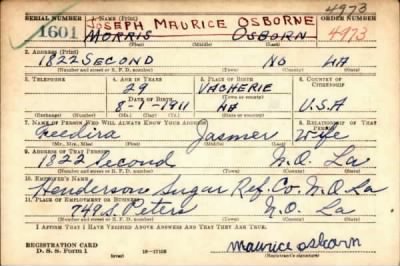 4973
SERIAL NUMBER 1. NAME (Print) ORDER NUMBER
JOSEPH MAURICE OSBORNE
1601 MORRIS OSBORN 4973
(First) (Middle) (Last)
2. ADDRESS (Print)
1822 SECOND NO LA
(Number and street or R. F. D. number) (Town) (County) (State)
3. TELEPHONE 4. AGE IN YEARS 5. PLACE OF BIRTH 6. COUNTRY OF CITIZENSHIP
29 VACHERIE
DATE OF BIRTH (Town or county)
8-1-1911 LA U.S.A
(Exchange) (No.) (Mo.) (Day) (Yr.) (State or country)
7. NAME OF PERSON WHO WILL ALWAYS KNOW YOUR ADDRESS 8. RELATIONSHIP OF THAT PERSON
Jasmer Wife
(Mr., Mrs., Miss) (First) (Middle) (Last)
9. ADDRESS OF THAT PERSON
1822 Second N.O. La
(Number and street or R. F. D. number) (Town) (County) (State)
10. EMPLOYER'S NAME
Henderson Sugar Ref. Co. N.O. La
11. PLACE OF EMPLOYMENT OR BUSINESS
749 S. Peters N.O. La
(Number and street or R. F. D. number) (Town) (County) (State)
I AFFIRM THAT I HAVE VERIFIED ABOVE ANSWERS AND THAT THEY ARE TRUE.
REGISTRATION CARD
D. S. S. Form 1 16-17105 maurice osborn
(Registrant's signature)